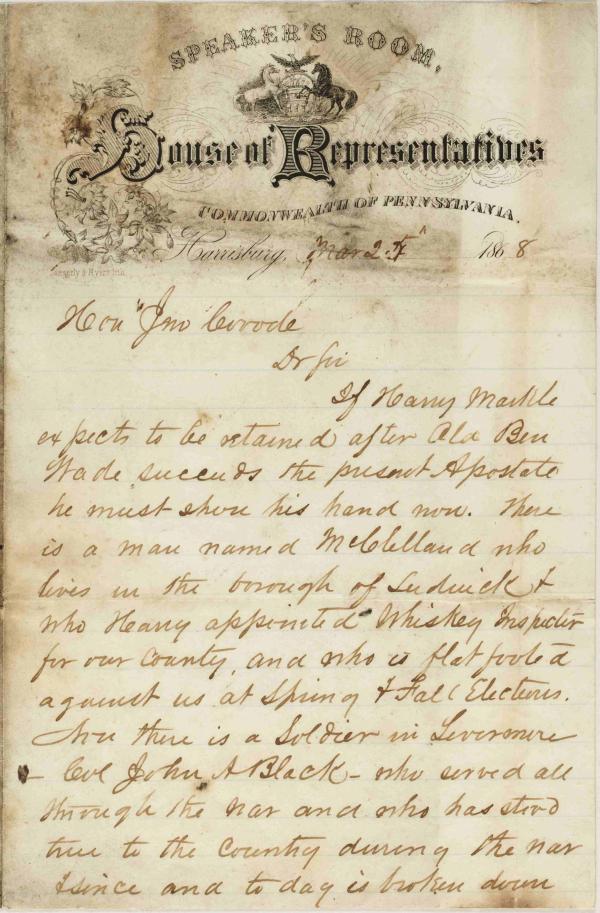 SPEAKER'S ROOM,
House of Representatives
COMMONWEALTH OF PENNSYLVANIA.
Harrisburg, Mar 24" 1868
Hon Jno Covode
Dr Sir
If Harry Markle
expects to be retained after Old Ben
Wade succeeds the present Apostate
he must show his hand now. There
is a man named McClelland who
lives in the borough of Ludwick &
who Harry appointed Whiskey Inspector
for our County, and who is flatfooted
against us at Spring & Fall Elections.
Now there is a Soldier in Livermore
- Col John A Black - who served all
through the war and who has stood
true to the Country during the war
& since and to day is broken down